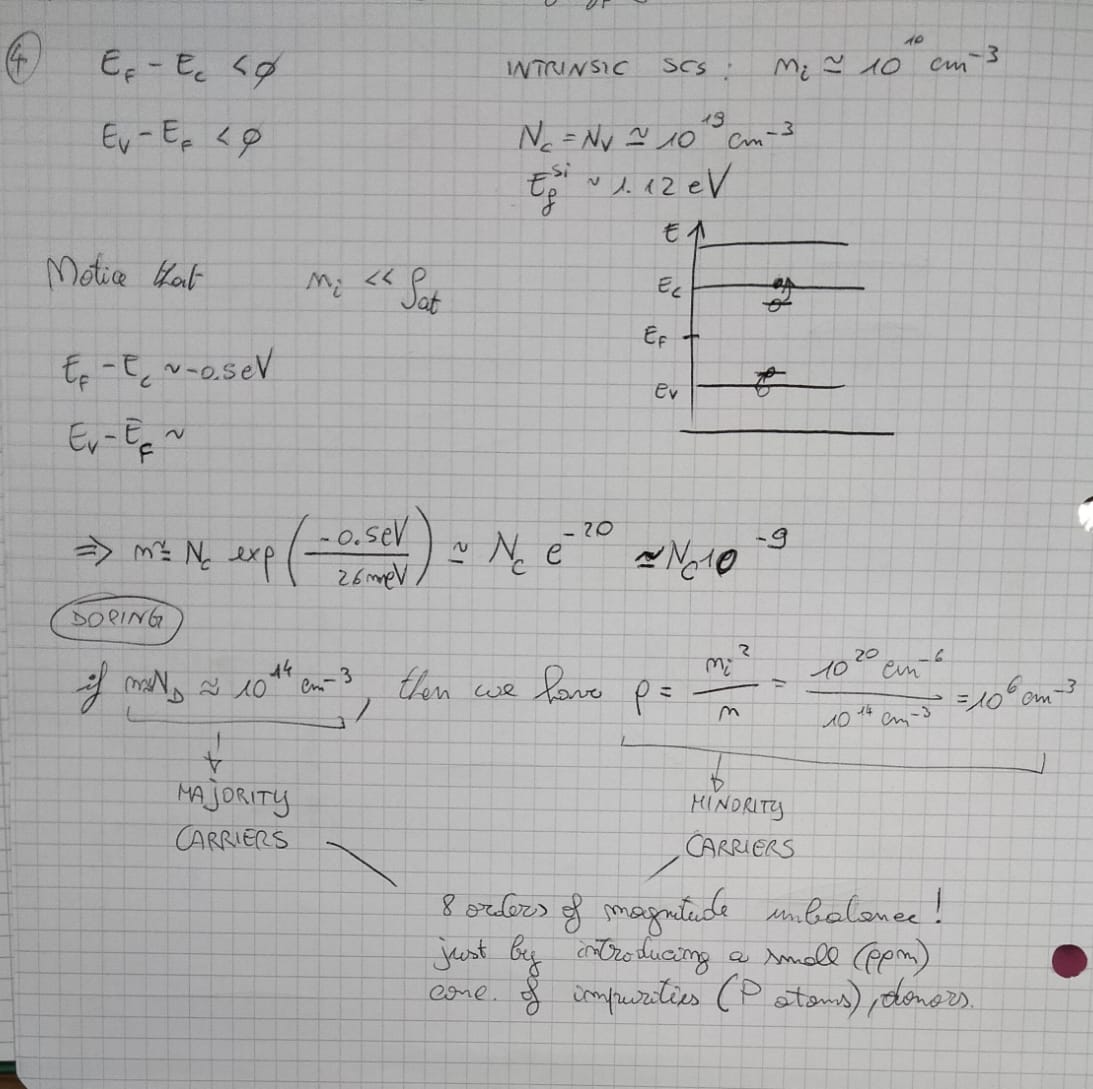 ④ E_F - E_C < ∅ INTRINSIC SCS: n_i ≃ 10^10 cm^-3
E_V - E_F < ∅ N_C = N_V ≃ 10^19 cm^-3
E_g^Si ~ 1.12 eV
E
Notice that n_i << ρ_at E_C
E_F
E_F - E_C ~ -0.5eV E_V
E_V - E_F ~
=> n ≃ N_C exp(-0.5eV / 26meV) ≃ N_C e^-20 ≃ N_C 10^-9
DOPING
if n≃N_D ≈ 10^14 cm^-3, then we have p = n_i^2 / n = 10^20 cm^-6 / 10^14 cm^-3 = 10^6 cm^-3
MAJORITY MINORITY
CARRIERS CARRIERS
8 orders of magnitude unbalance!
just by introducing a small (ppm)
conc. of impurities (P atoms), donors.